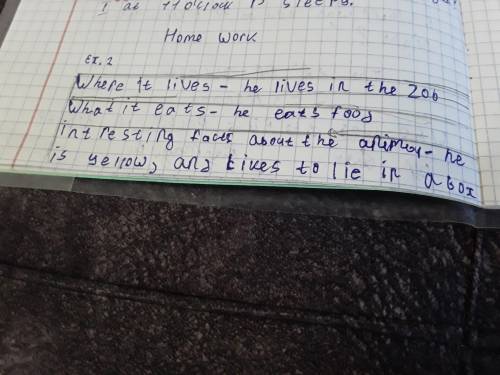 at 11 o'clock is sleeps.
Home work
Ex. 2
Where it lives - he lives in the Zoo
What it eats - he eats food
intresting facts about the animal - he
is yellow, and likes to lie in a box